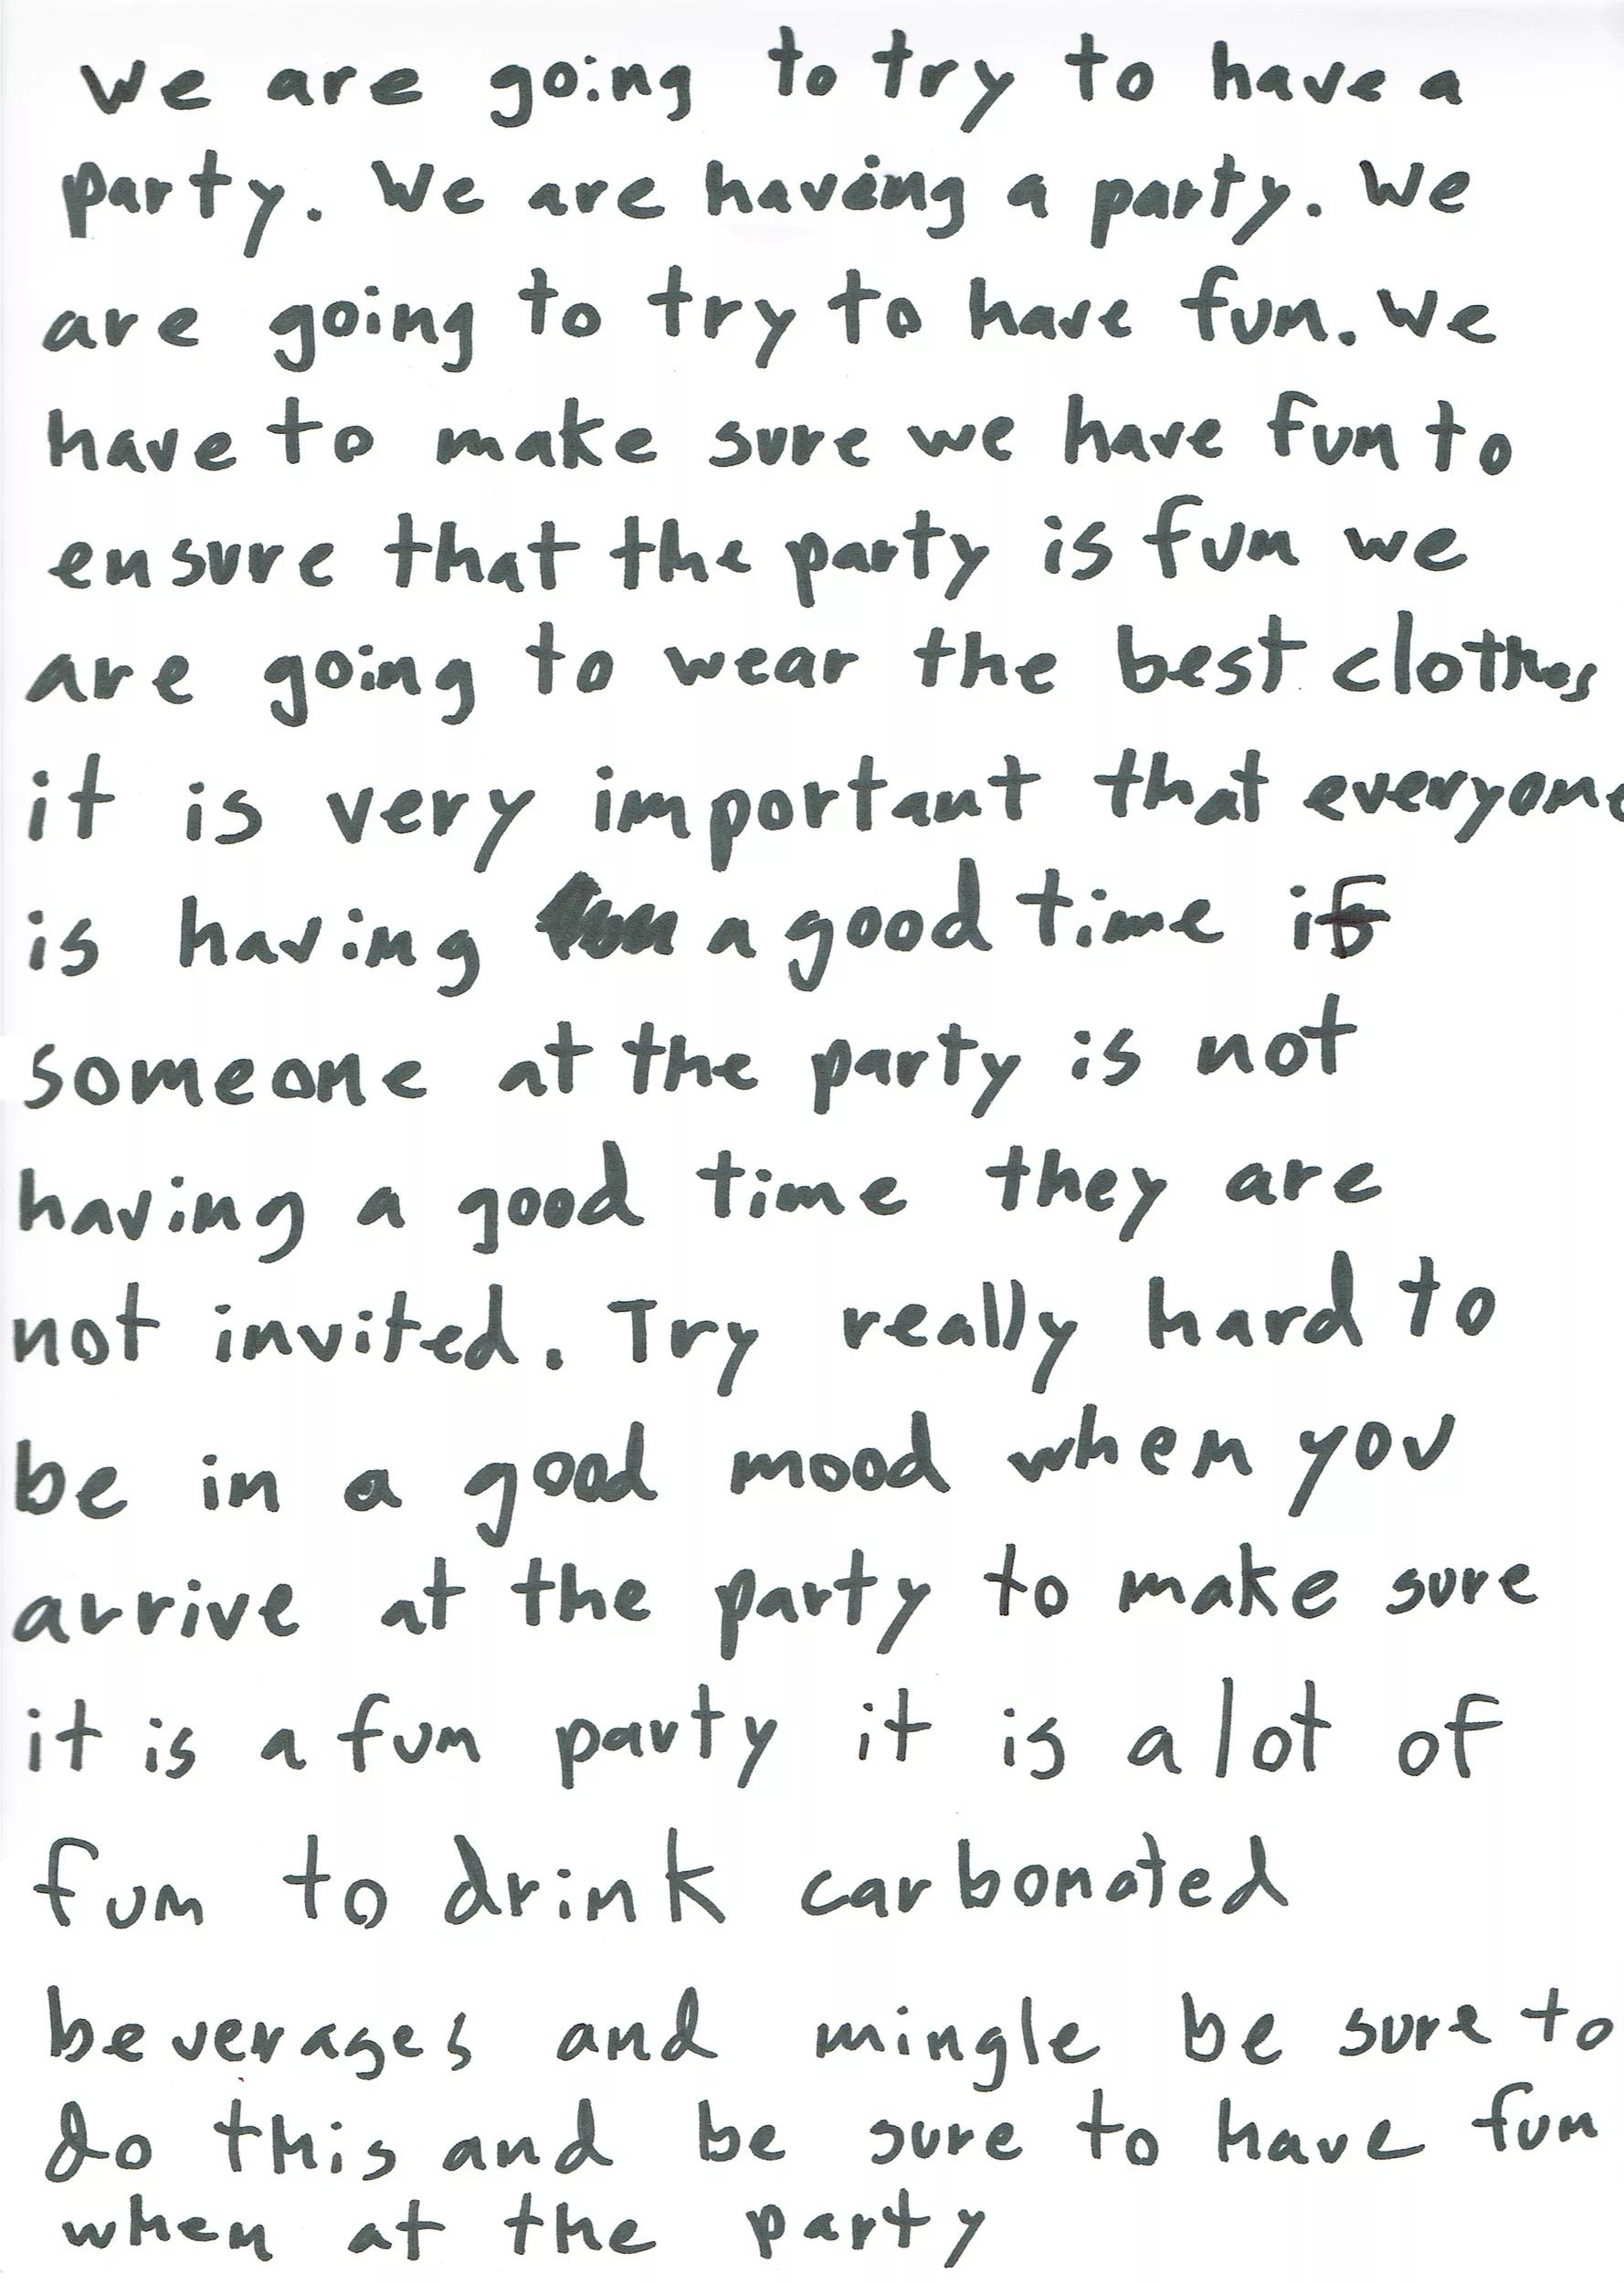 We are going to try to have a
party. We are having a party. We
are going to try to have fun. We
have to make sure we have fun to
ensure that the party is fun we
are going to wear the best clothes
it is very important that everyone
is having a good time if
someone at the party is not
having a good time they are
not invited. Try really hard to
be in a good mood when you
arrive at the party to make sure
it is a fun party it is a lot of
fun to drink carbonated
beverages and mingle be sure to
do this and be sure to have fun
when at the party